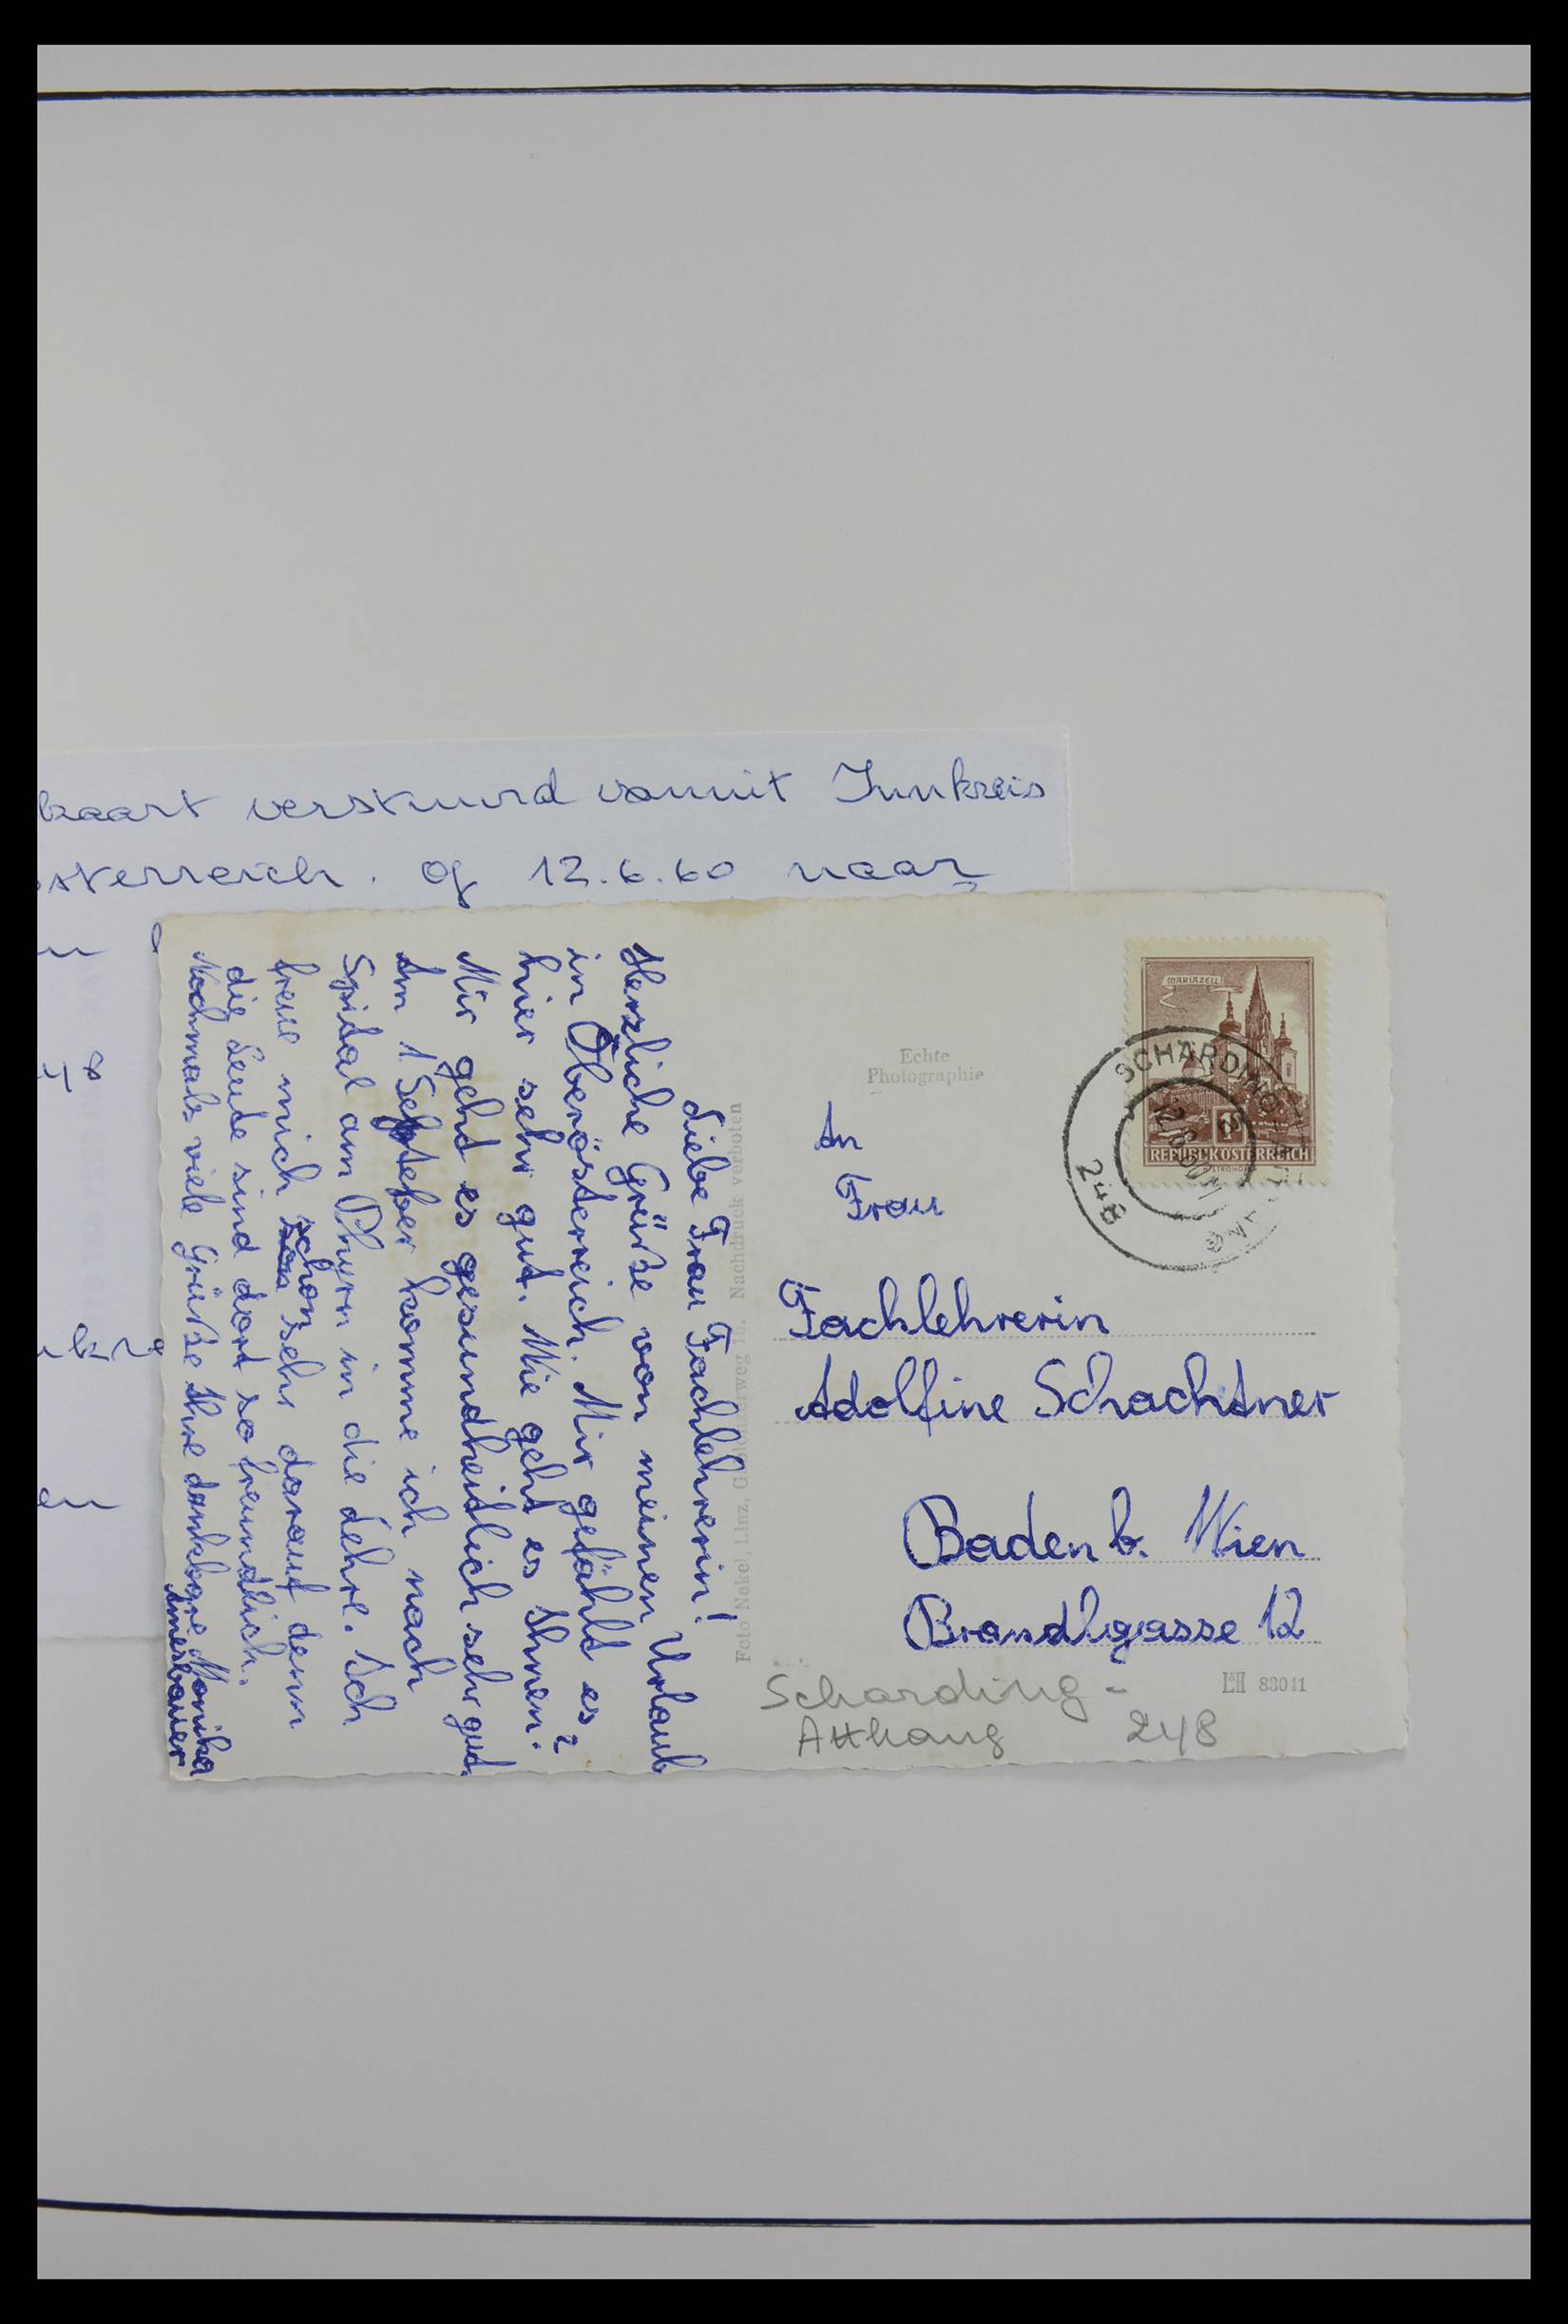 kaart verstuurd vanuit Innkreis
sterreich. op 12.6.60 naar
48
en
MARIAZELL
REPUBLIK ÖSTERREICH
SCHÄRDING
248
Echte
Photographie
Liebe Frau Fachlehrerin!
Herzliche Grüße von meinen Urlaub
in Oberösterreich. Mir gefählt es
hier sehr gut. Wie geht es Ihnen?
Mir geht es gesundheitlich sehr gut.
Am 1. Septeber komme ich nach
Spital am Phyrn in die Lehre. Ich
freue mich schon sehr darauf denn
die Leute sind dort so freundlich.
Nochmals viele Grüße Ihre dankbare Monika
Foto Nakel, Linz, Nachdruck verboten
An
Frau
Fachlehrerin
Adolfine Schachtner
Baden b. Wien
Brandlgasse 12
83011
Scharding -
Atthang 248